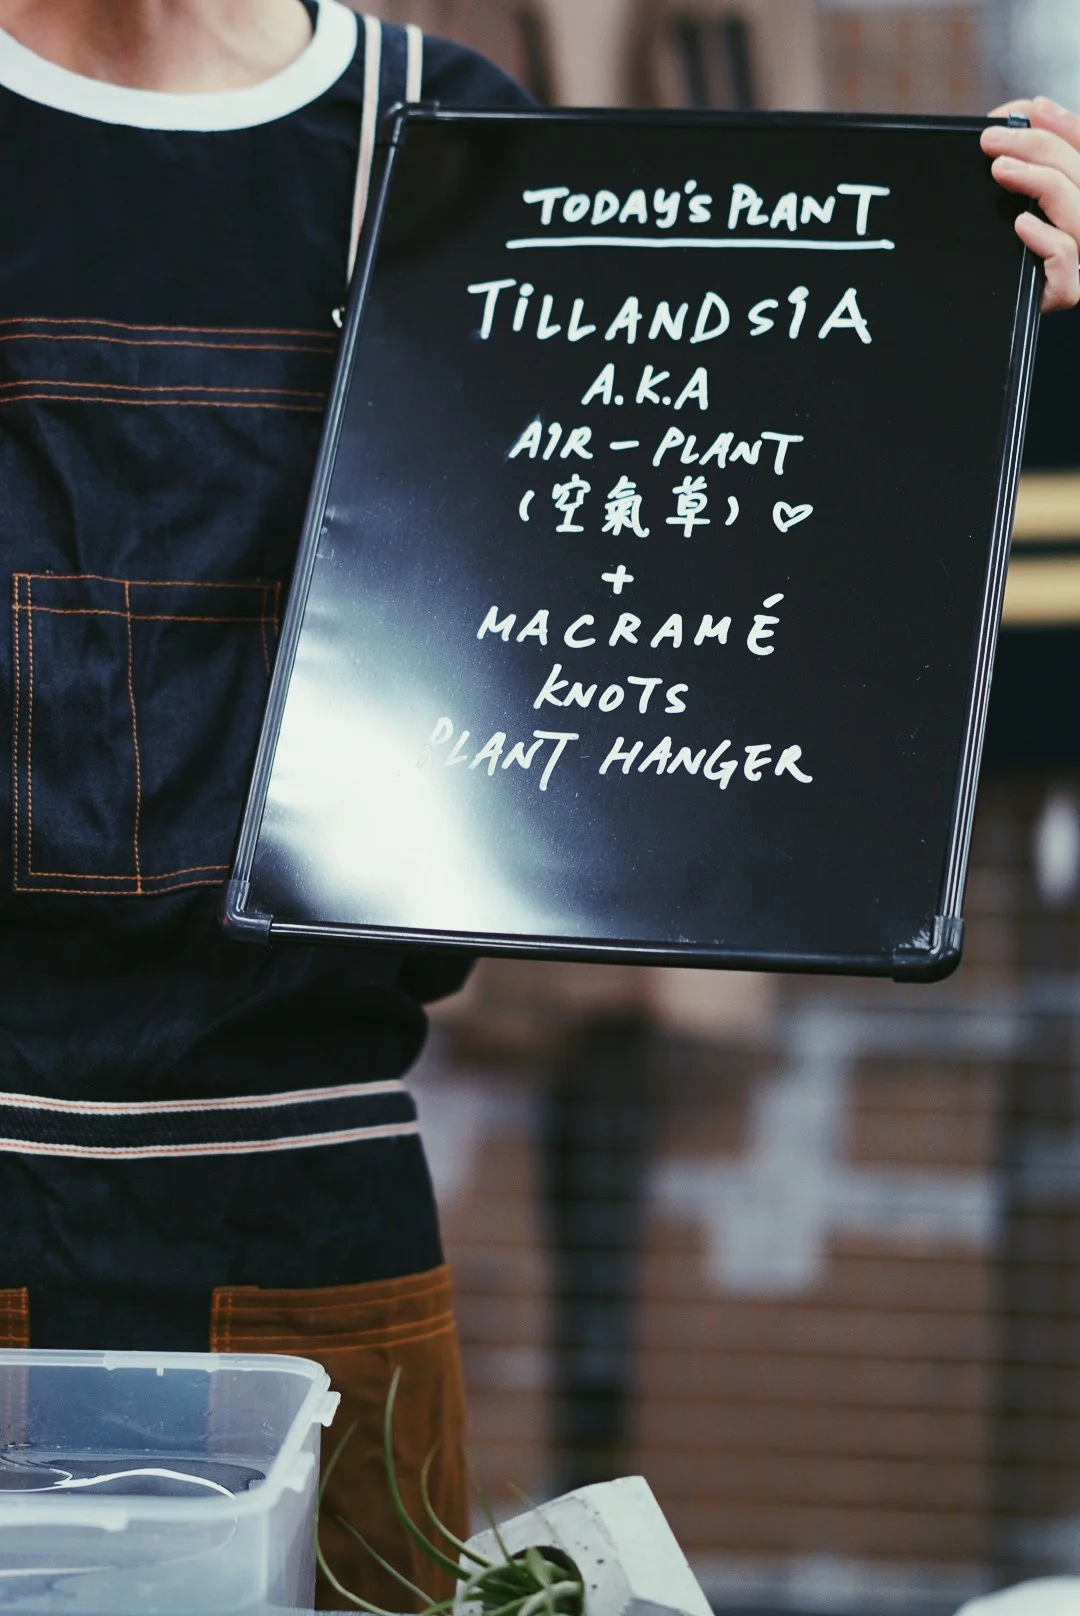 TODAY'S PLANT
TILLANDSIA
A.K.A
AIR - PLANT
(空氣草) ♡
+
MACRAMÉ
KNOTS
PLANT HANGER